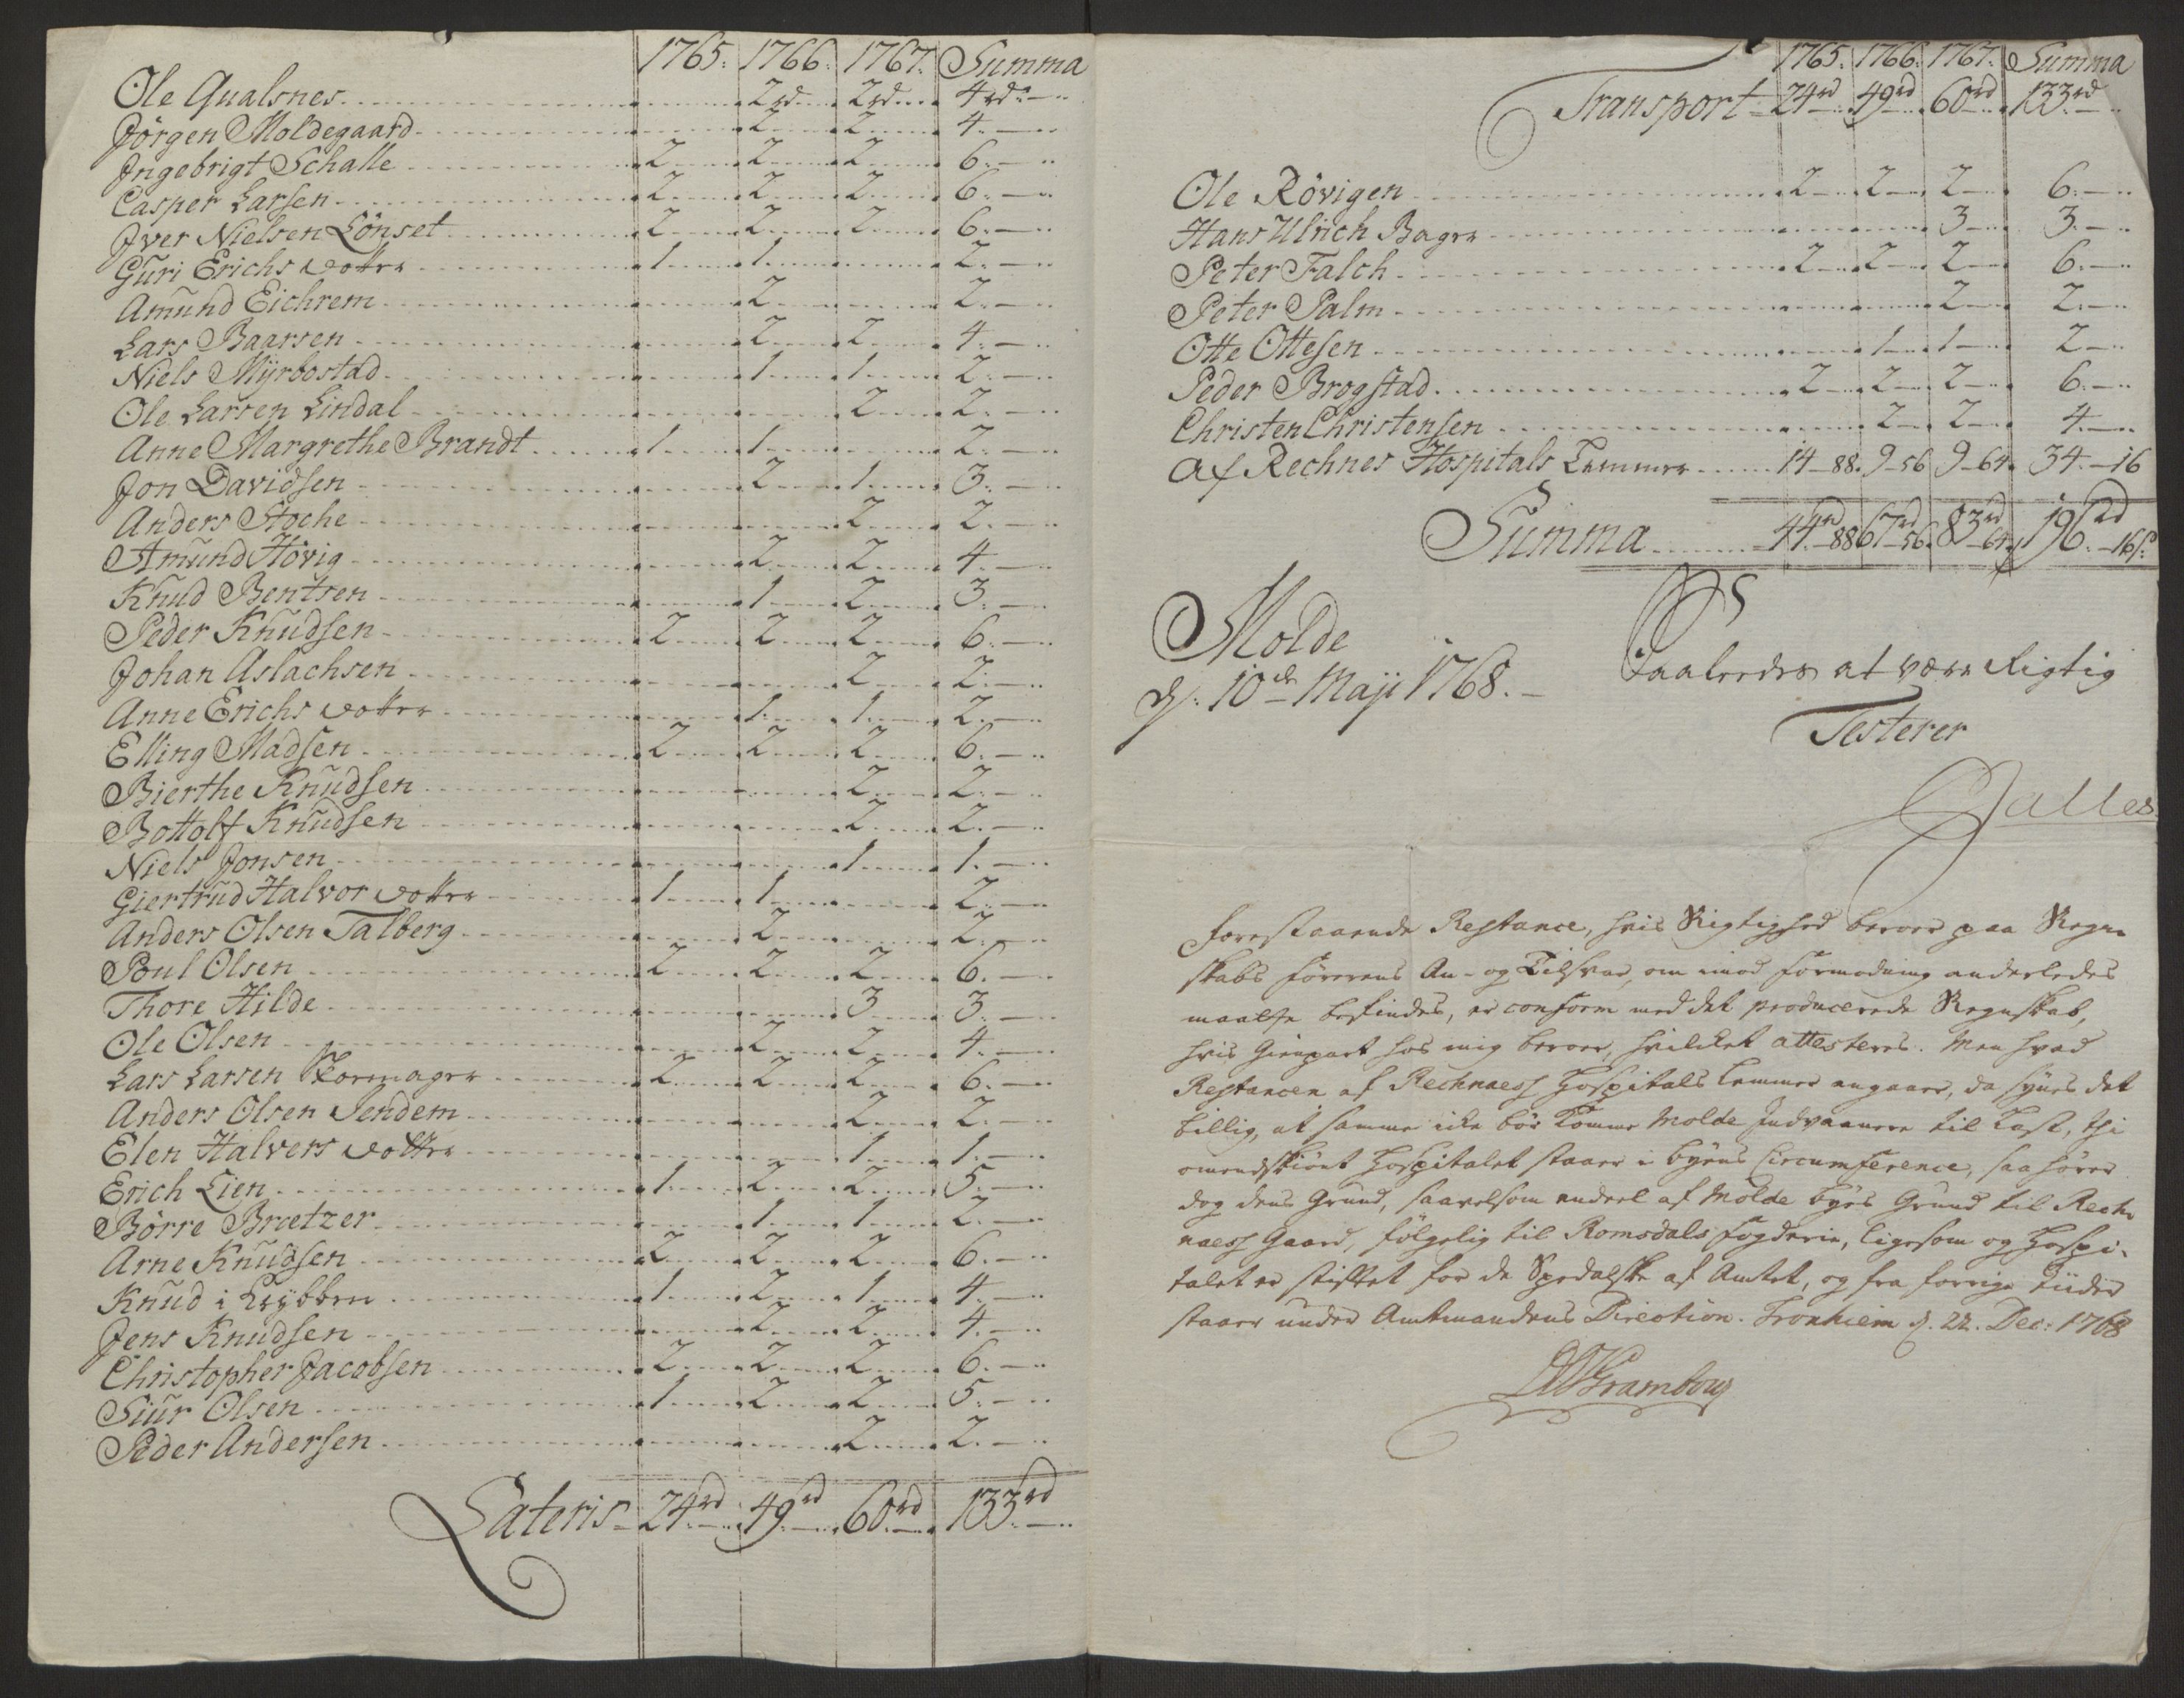 1765. 1766. 1767. Summa
Ole Qualsnes 2rd 2rd 4rd
Jörgen Moldegaard 2 2 4. —
Ingebrigt Schalle 2 2 2 6. —
Casper Larsen 2 2 2 6. —
Iver Nielsen Lönset 2 2 2 6. —
Guri Erichs dotter 1 1 2. —
Amund Eichrem 2 2. —
Lars Baarsen 2 2 4. —
Niels Myrbostad 1 1 2. —
Ole Larsen Lindal 2 2. —
Anne Margrethe Brandt 1 1 2. —
Jon Davidsen 2 1 3. —
Anders Stoche 2 2. —
Amund Hövig 2 2 4. —
Knud Bentsen 1 2 3. —
Peder Knudsen 2 2 2 6. —
Johan Aslachsen 2 2. —
Anne Erichs dotter 1 1 2. —
Elling Madsen 2 2 2 6. —
Bierthe Knudsen 2 2. —
Bottolf Knudsen 2 2. —
Niels Jonsen 1 1. —
Giertrud Halvor dotter 1 1 2. —
Anders Olsen Talberg 2 2. —
Poul Olsen 2 2 2 6. —
Thore Hilde 3 3. —
Ole Olsen 2 2 4. —
Lars Larsen Skoemager 2 2 2 6. —
Anders Olsen Sendem 2 2. —
Elen Halvers dotter 1 1. —
Erich Lien 1 2 2 5. —
Börre Brætzer 1 1 2. —
Arne Knudsen 2 2 2 6. —
Knud i 1 2 1 4. —
Jens Knudsen 2 2 4. —
Christopher Jacobsen 2 2 2 6. —
Siur Olsen 1 2 2 5. —
Peder Andersen 2 2. —
Lateris 24rd 49rd 60rd 133rd
1765. 1766. 1767. Summa
Transport 24rd 49rd 60rd 133rd
Ole Rövigen 2 2 2 6. —
Hans Ulrich Bager 3 3. —
Peter Falch 2 2 2 6. —
Peter Palm 2 2. —
Otte Ottesen 1 1 2 —
Peder Brogstad 2 2 2 6. —
Christen Christensen 2 2 4. —
Af Rechnes Hospitals Lemmer 14-88. 9-56 9-64. 34.-16
Summa 44rd-88 67rd-56. 83rd-64 196rd-16s.
Molde
d. 10de Maji 1768. —
Saaledes at være Rigtig
Testerer
Dalles
Forestaaende Restance, hvis Rigtighed beroer paa Regn-
skabs förerens An- og Tilsvar, om imod Formodning anderledes
maatte befindes, er conform med det producerede Regnskab,
hvis Gienpart hos mig beroer, hvilcket attesteres. Men hvad
Restancen af Rechnaess Hospitals Lemmer angaaer, da synes det
billig, at samme icke bör komme Molde Indvaanere til Last, thi
omendskiönt Hospitalet staaer i byens Circumference, saa hörer
dog dens Grund, saavelsom endeel af Molde byes Grund til Rech-
naess Gaard, fölgelig til Romsdals Fogderie, ligesom og Hospi-
talet er stiftet for de Spedalske af Amtet, og fra forrige Tiider
staaer under Amtmandens Direction. Tronhiem d. 22. Dec: 1768